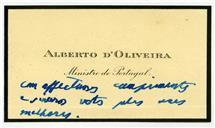 ALBERTO D'OLIVEIRA
Ministro de Portugal
com affectuosos cumprimentos
e sinceros votos pelas suas
melhoras.